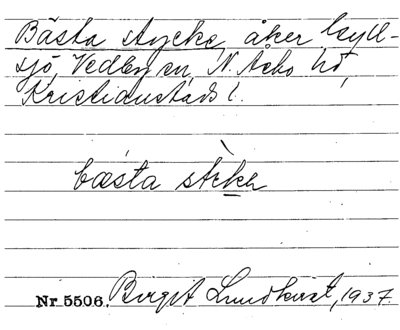 Bästa stycke, åker Gyll-
sjö, Vedby sn, N. Åsbo hd,
Kristianstads l.
bæsta stèke
Nr 5506. Birgit Lundkvist, 1937.